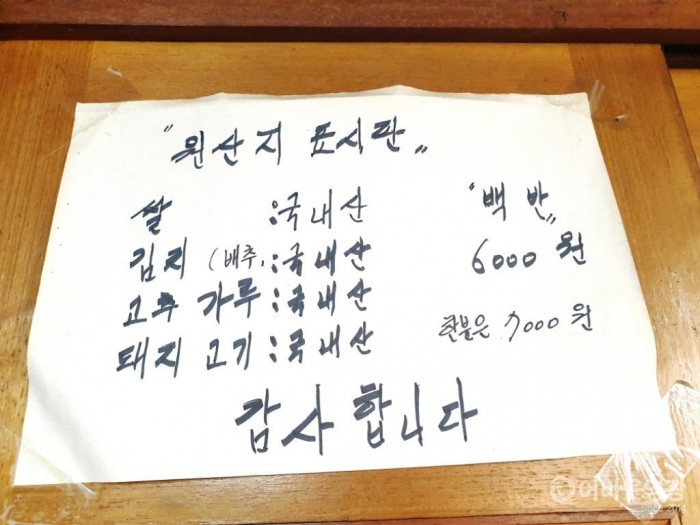 "원산지 표시판"
쌀 :국내산
김치 (배추, :국내산
고추 가루:국내산
돼지 고기:국내산
"백반"
6000 원
한분은 7000 원
감사합니다